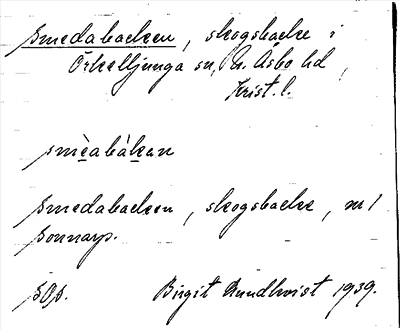 Smedabacken, skogsbacke i
Örkelljunga sn, N. Åsbo hd,
Krist. l.
smèabàkan
Smedabacken, skogsbacke, nr 1
Sonnarp.
Birgit Rundkvist 1939.